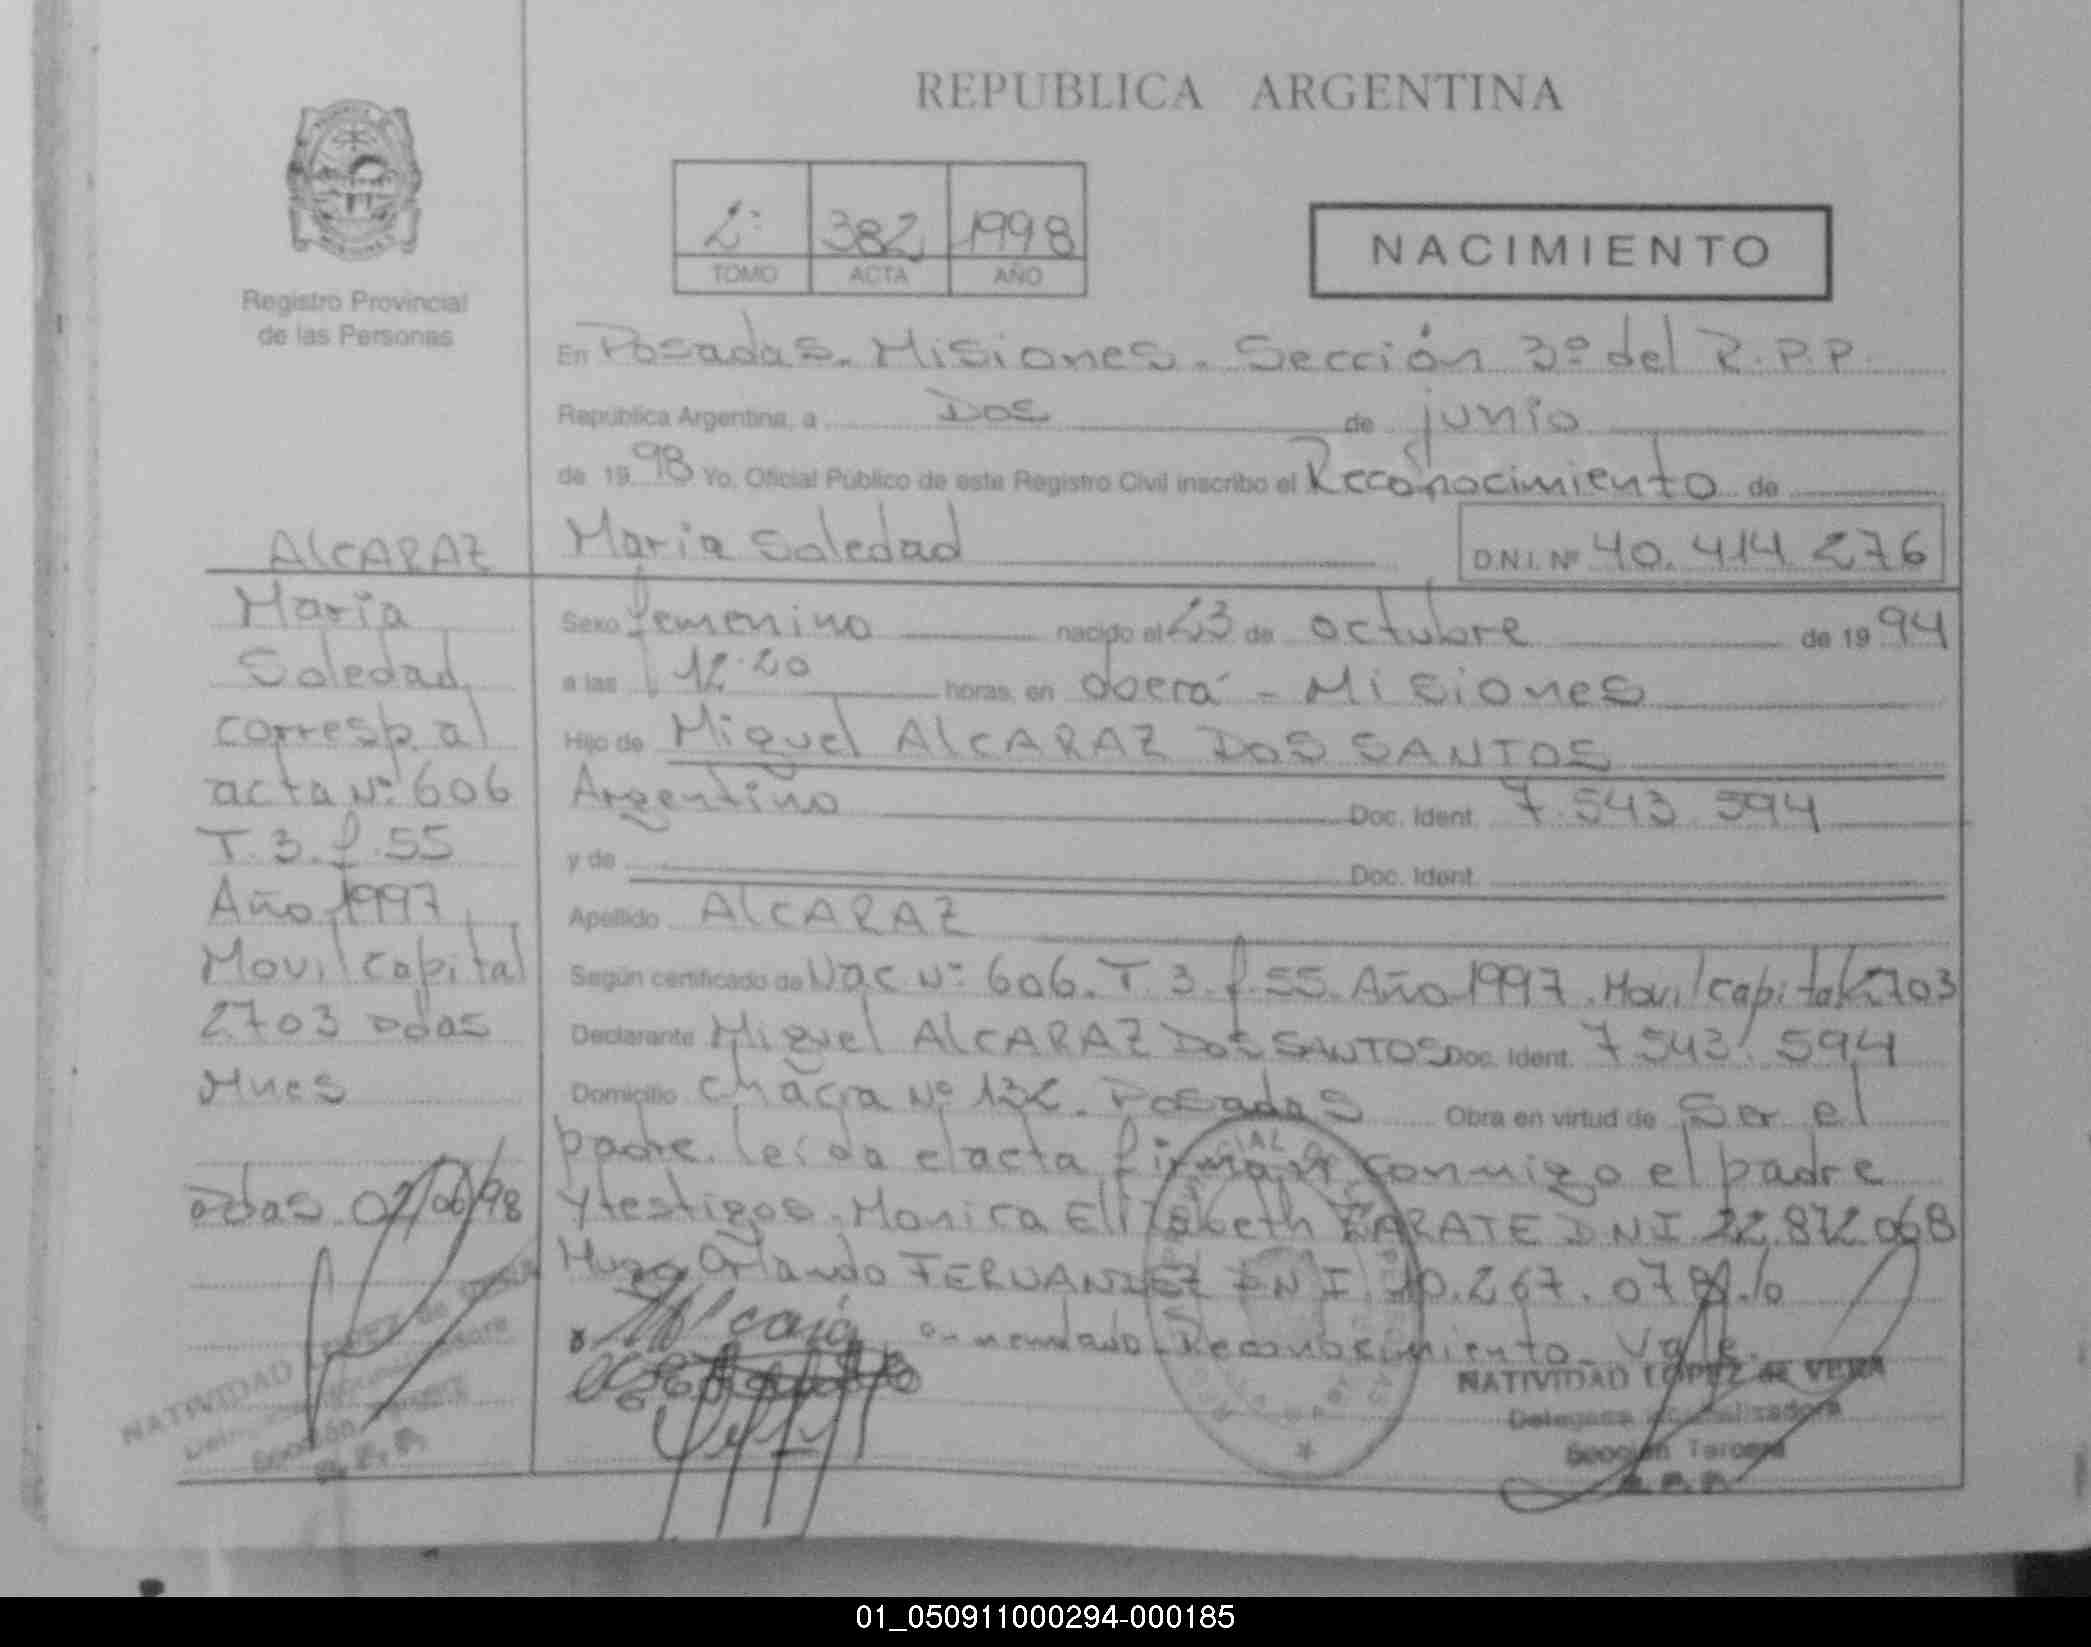 REPUBLICA ARGENTINA
2º 382 1998
TOMO ACTA AÑO
NACIMIENTO
Registro Provincial
de las Personas
En Posadas. Misiones. Sección 3º del R.P.P.
República Argentina, a Dos de junio
de 1998 Yo, Oficial Público de este Registro Civil inscribo el Reconocimiento de
Maria Soledad D.N.I. Nº 40.414.276
Sexo femenino nacido el 23 de octubre de 1994
a las 12.20 horas, en oberá - Misiones
Hijo de Miguel AlCARAZ DOS SANTOS
Argentino Doc. Ident. 7.543.594
y de Doc. Ident.
Apellido AlCARAZ
Según certificado de Nac. Nº 606. T. 3. f. 55. Año 1997. Movil capital 2703
Declarante Miguel AlCARAZ DOS SANTOS Doc. Ident. 7.543.594
Domicilio Chacra Nº 132. Posadas Obra en virtud de Ser el
padre. leída el acta firman conmigo el padre
y testigos. Monica Elizabeth ZARATE DNI 22.872.068
Hugo Orlando FERNANDEZ DNI
Reconocimiento. Vale.
NATIVIDAD LOPEZ de VERA
Delegada
Sección Tercera
R.P.P.
AlCARAZ
Maria
Soledad
corresp. al
acta Nº 606
T. 3. f. 55
Año 1997
Movil capital
2703 pdas
Mnes
pdas. 02/06/98
NATIVIDAD LOPEZ de VERA
Sección Tercera
R.P.P.
01_050911000294-000185